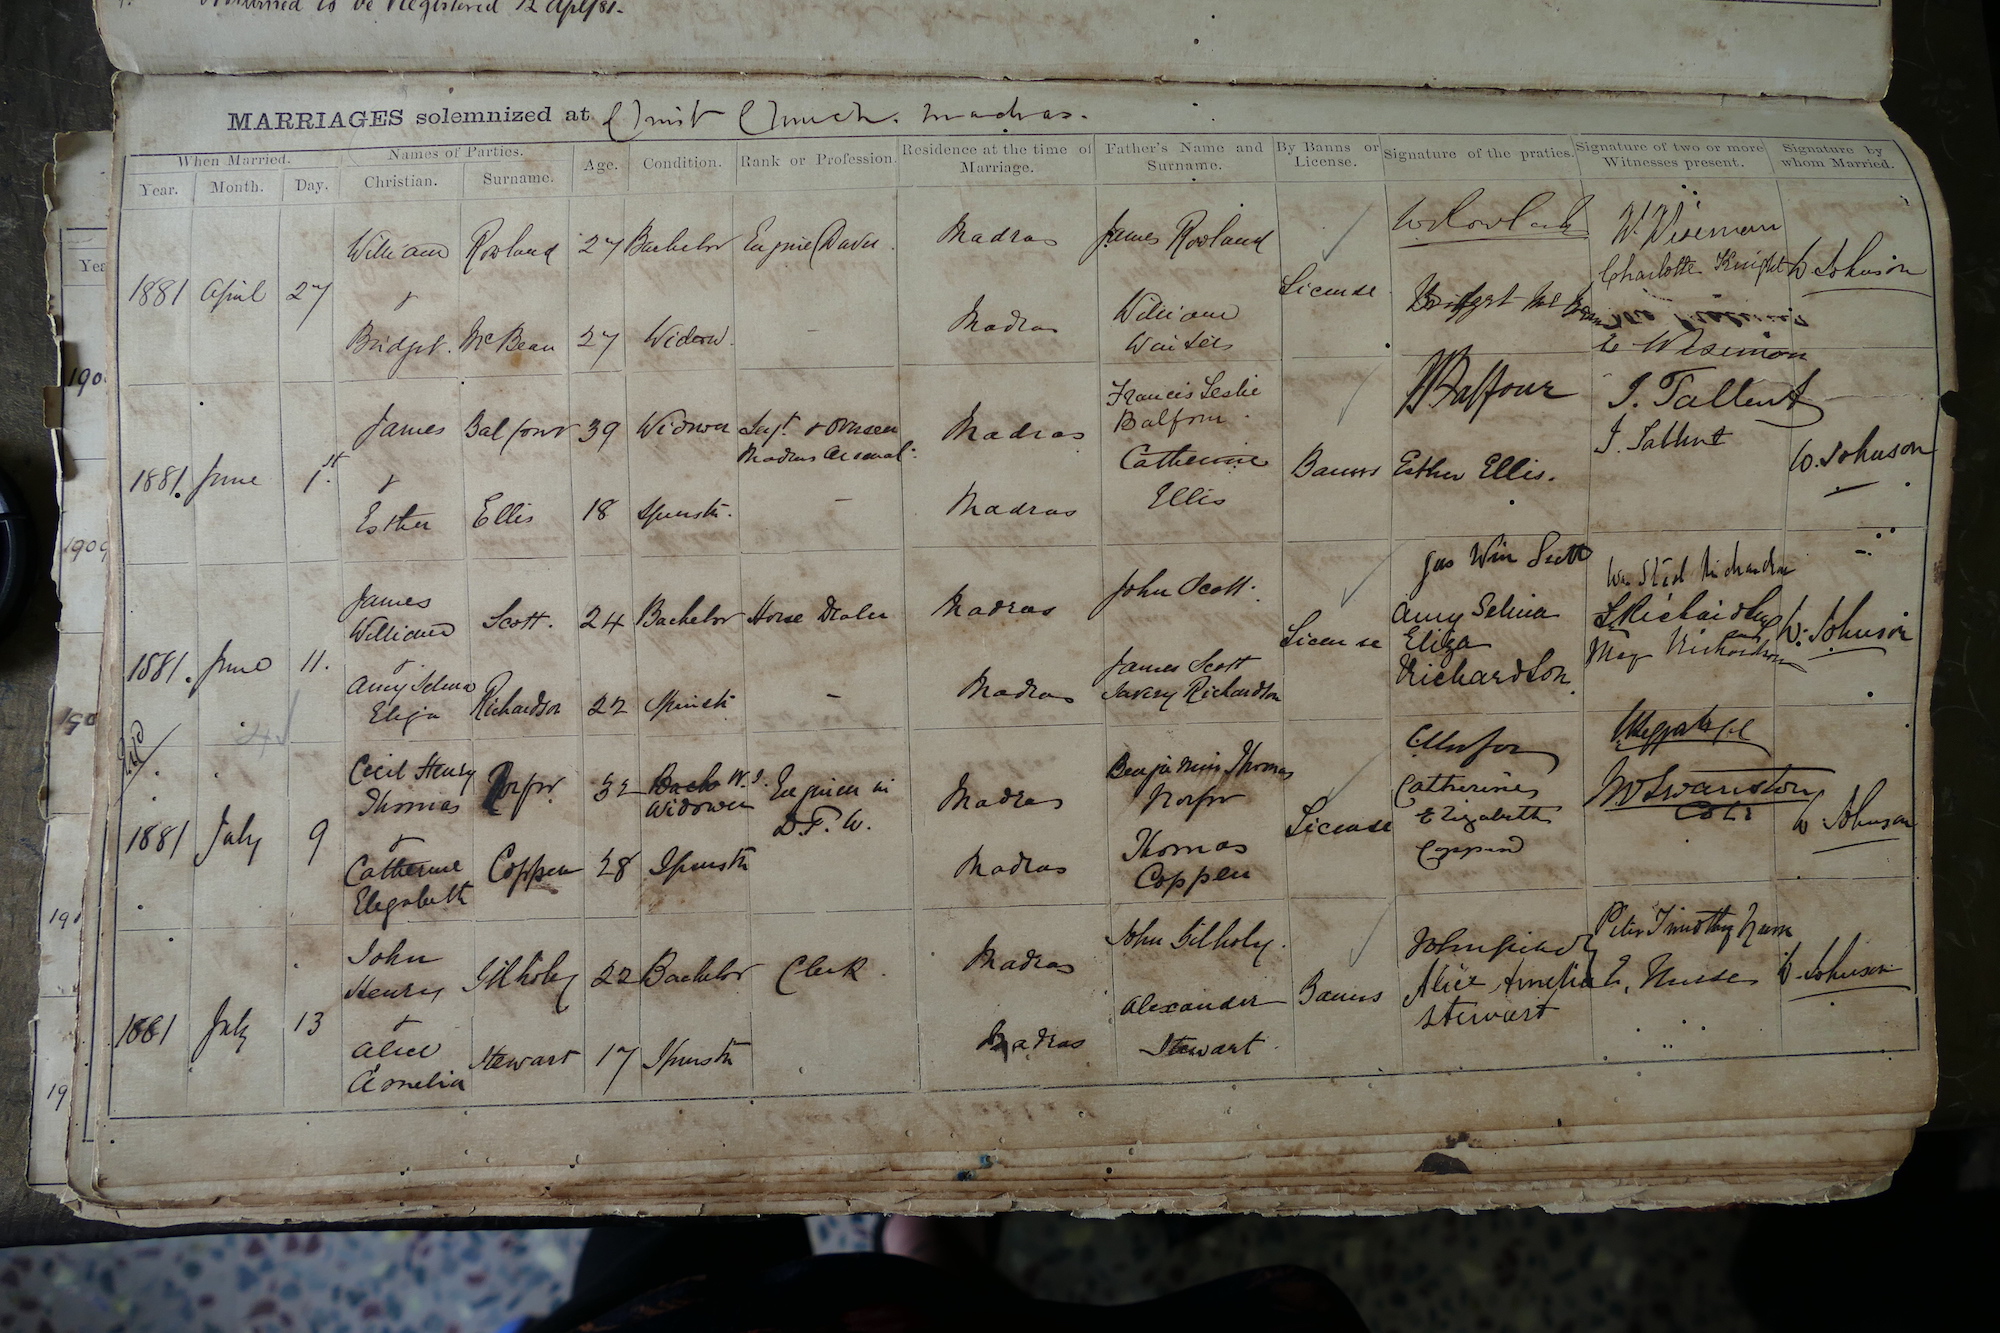 Returned to be Registered 12 Apl/81.
MARRIAGES solemnized at Christ Church. Madras.
When Married. Names of Parties. Age. Condition. Rank or Profession. Residence at the time of Marriage. Father's Name and Surname. By Banns or License. Signature of the praties. Signature of two or more Witnesses present. Signature by whom Married.
Year. Month. Day. Christian. Surname.
William Rowland 27 Bachelor Engine Driver Madras James Rowland W Rowland W. Wiseman
1881 April 27 & License Charlotte Knight W Johnson
Bridget McBean 27 Widow. – Madras William Waiters Bridget McBean
E Wiseman
James Balfour 39 Widower Sergt. & Overseer Madras Arsenal. Madras Francis Leslie Balfour. Balfour J. Tallent
1881. June 1st. & Banns J. Tallent W. Johnson
Esther Ellis 18 Spinstr. – Madras Catherine Ellis Esther Ellis.
James William Scott. 24 Bachelor Horse Dealer Madras John Scott. Jas Wm Scott
1881. June 11. & License Richardson W. Johnson
Amy Selina Eliza Richardson 22 Spinstr – Madras James Scott Savery Richardson Amy Selina Eliza Richardson May Richardson
Cecil Henry Thomas Norfor 32 Bach W.J. Widower Engineer in D.P.W. Madras Benjamin Thomas Norfor
1881 July 9 & License W Johnson
Catherine Elizabeth Coppen 28 Spinstr Madras Thomas Coppen Catherine Elizabeth Coppen
John Henry Gilholy 22 Bachelor Clerk. Madras John Gilholy. Peter Timothy
1881 July 13 & Banns Nurse W. Johnson
Alice Amelia Stewart 17 Spinstr Madras Alexander Stewart. Alice Amelia Stewart
Yea
190
1909
190
191
19